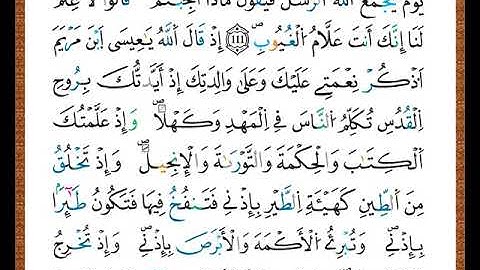 يَوْمَ يَجْمَعُ اللَّهُ الرُّسُلَ فَيَقُولُ مَاذَا أُجِبْتُمْ قَالُوا لَا عِلْمَ
لَنَا إِنَّكَ أَنتَ عَلَّامُ الْغُيُوبِ ۝١١١ إِذْ قَالَ اللَّهُ يَاعِيسَى ابْنَ مَرْيَمَ
اذْكُرْ نِعْمَتِي عَلَيْكَ وَعَلَىٰ وَالِدَتِكَ إِذْ أَيَّدتُّكَ بِرُوحِ
الْقُدُسِ تُكَلِّمُ النَّاسَ فِي الْمَهْدِ وَكَهْلًا وَإِذْ عَلَّمْتُكَ
الْكِتَابَ وَالْحِكْمَةَ وَالتَّوْرَاةَ وَالْإِنجِيلَ وَإِذْ تَخْلُقُ
مِنَ الطِّينِ كَهَيْئَةِ الطَّيْرِ بِإِذْنِي فَتَنفُخُ فِيهَا فَتَكُونُ طَٰٓئِرًا
بِإِذْنِي وَتُبْرِئُ الْأَكْمَهَ وَالْأَبْرَصَ بِإِذْنِي وَإِذْ تُخْرِجُ